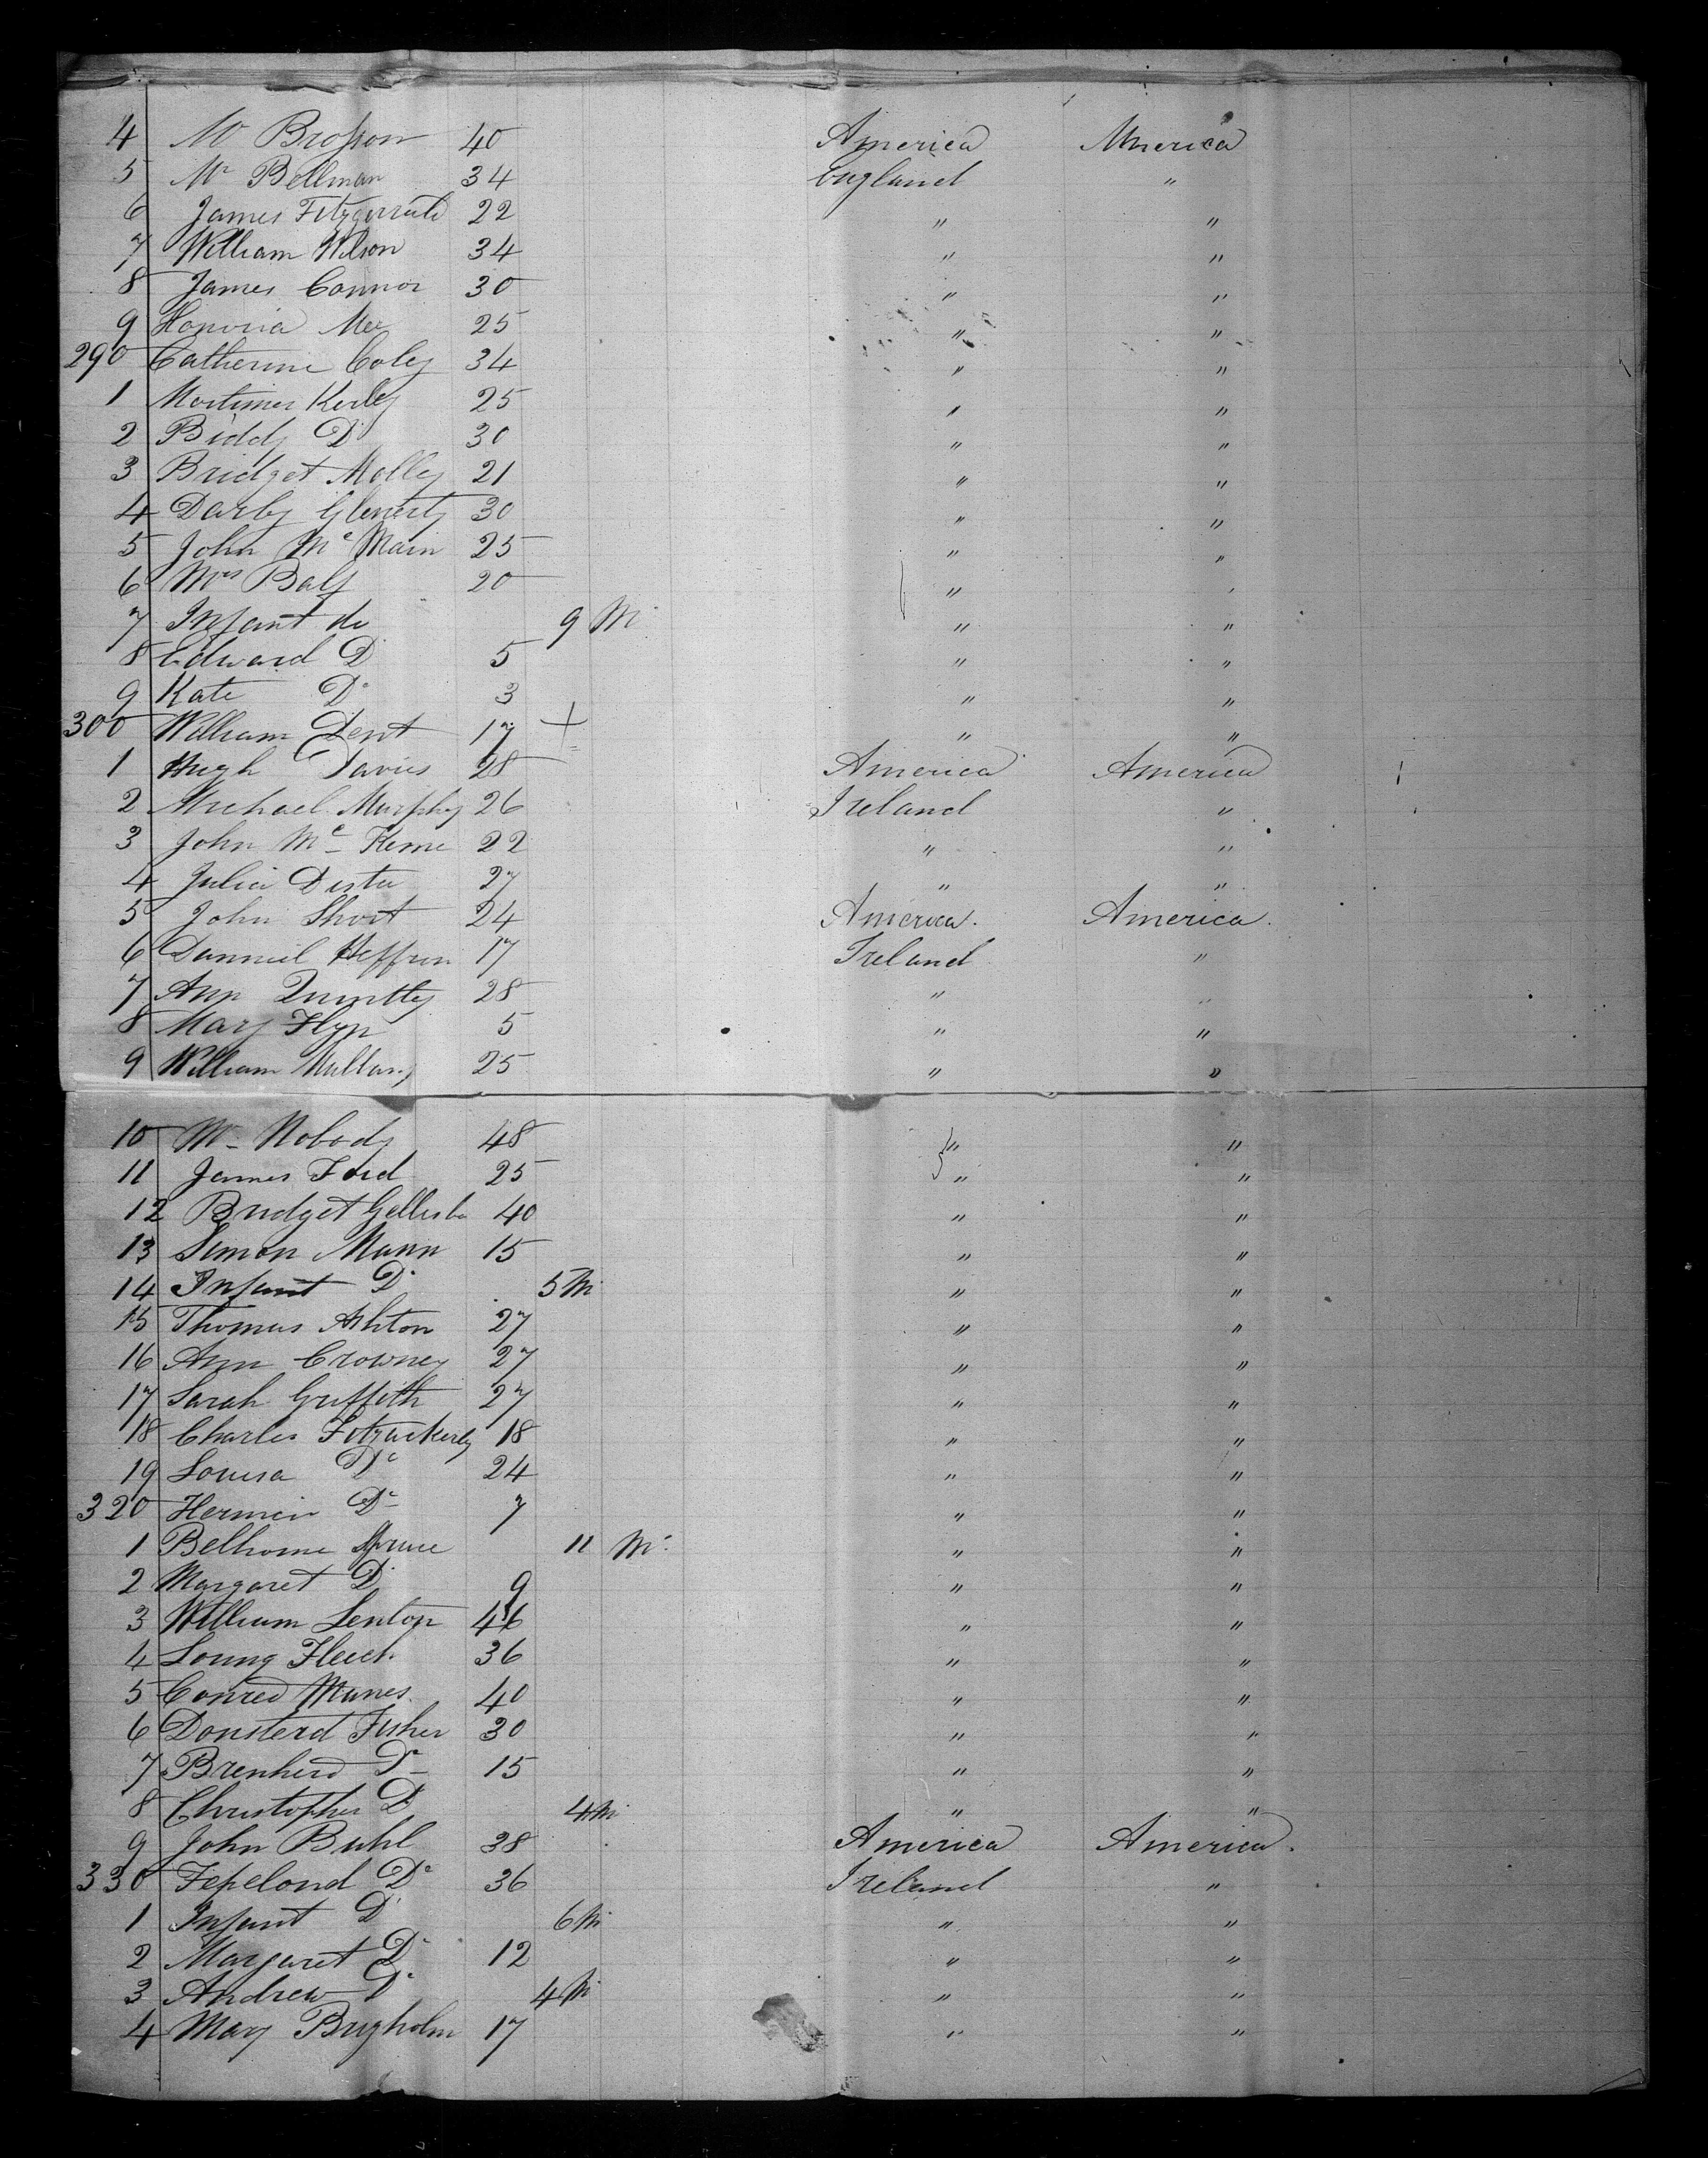 4 Mr Brosson 40 America America
5 Mr Bellman 34 England "
6 James Fitzgerrald 22 " "
7 William Wilson 34 " "
8 James Connor 30 " "
9 Honoria Mee 25 " "
290 Catherine Coley 34 " "
1 Mortimer Kerley 25 " "
2 Biddy Do 30 " "
3 Bridget Molley 21 " "
4 Darby Glenerty 30 " "
5 John Mc Main 25 " "
6 Mrs Balf 20 " "
7 Infant do 9 M " "
8 Edward Do 5 " "
9 Kate Do 3 " "
300 William Dent 17 + " "
1 Hugh Davies 28 America America
2 Michael Murphy 26 Ireland "
3 John Mc Kerne 22 " "
4 Julia 27 " "
5 John Short 24 America. America.
6 Danniel Heffron 17 Ireland "
7 Ann 28 " "
8 Mary Flyn 5 " "
9 William Mullany 25 " "
10 Mr Nobody 48 " "
11 James Ford 25 " "
12 Bridget 40 " "
13 Simon Mann 15 " "
14 Infant Do 5 M " "
15 Thomas Ashton 27 " "
16 Ann Crowney 27 " "
17 Sarah Griffith 27 " "
18 Charles Fitzackerly 18 " "
19 Louisa Do 24 " "
320 Hermein Do 7 " "
1 Belhome 11 M " "
2 Margaret Do 9 " "
3 William Lenton 46 " "
4 Loung 36 " "
5 Conred Manes 40 " "
6 Donsterd Fisher 30 " "
7 Brenherd Do 15 " "
8 Christopher Do 4 M " "
9 John Buhl 38 America America.
330 Fepelond Do 36 Ireland "
1 Infant Do 6 M " "
2 Margaret Do 12 " "
3 Andrew Do 4 M " "
4 Mary Brugholm 17 " "